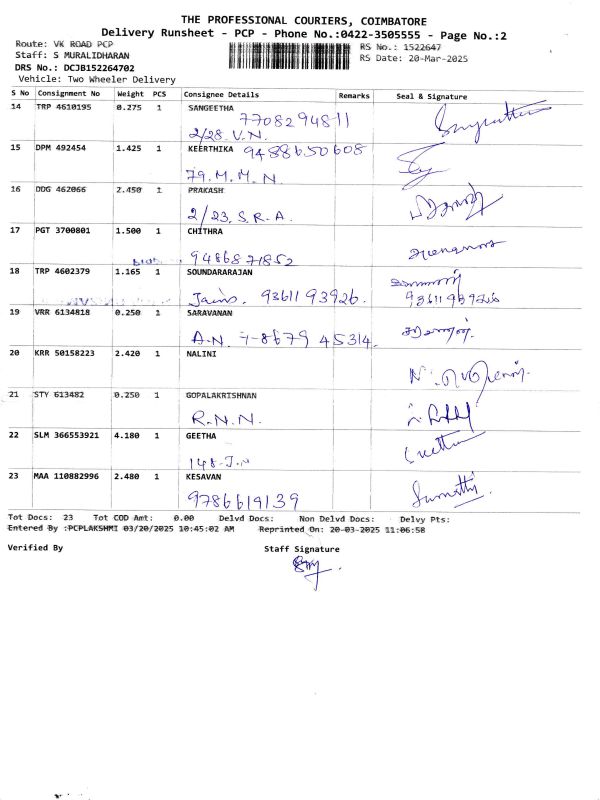 THE PROFESSIONAL COURIERS, COIMBATORE
Delivery Runsheet - PCP - Phone No.:0422-3505555 - Page No.:2
Route: VK ROAD PCP RS No.: 1522647
Staff: S MURALIDHARAN RS Date: 20-Mar-2025
DRS No.: DCJB152264702
Vehicle: Two Wheeler Delivery
S No Consignment No Weight PCS Consignee Details Remarks Seal & Signature
14 TRP 4610195 0.275 1 SANGEETHA
7708294811
2/28 V.N.
15 DPM 492454 1.425 1 KEERTHIKA 9488650608
79. M. M. N.
16 DDG 462066 2.450 1 PRAKASH
2/23, S. R. A.
17 PGT 3700801 1.500 1 CHITHRA
9486871852
18 TRP 4602379 1.165 1 SOUNDARARAJAN
Jains. 93611 93926.
19 VRR 6134818 0.250 1 SARAVANAN சரவணன்.
A.N. 7-8679 45314.
20 KRR 50158223 2.420 1 NALINI
21 STY 613482 0.250 1 GOPALAKRISHNAN
R.N.N.
22 SLM 366553921 4.180 1 GEETHA Geetha
148-J.N
23 MAA 110882996 2.480 1 KESAVAN Sumathi.
9786619139
Tot Docs: 23 Tot COD Amt: 0.00 Delvd Docs: Non Delvd Docs: Delvy Pts:
Entered By :PCPLAKSHMI 03/20/2025 10:45:02 AM Reprinted On: 20-03-2025 11:06:58
Verified By Staff Signature